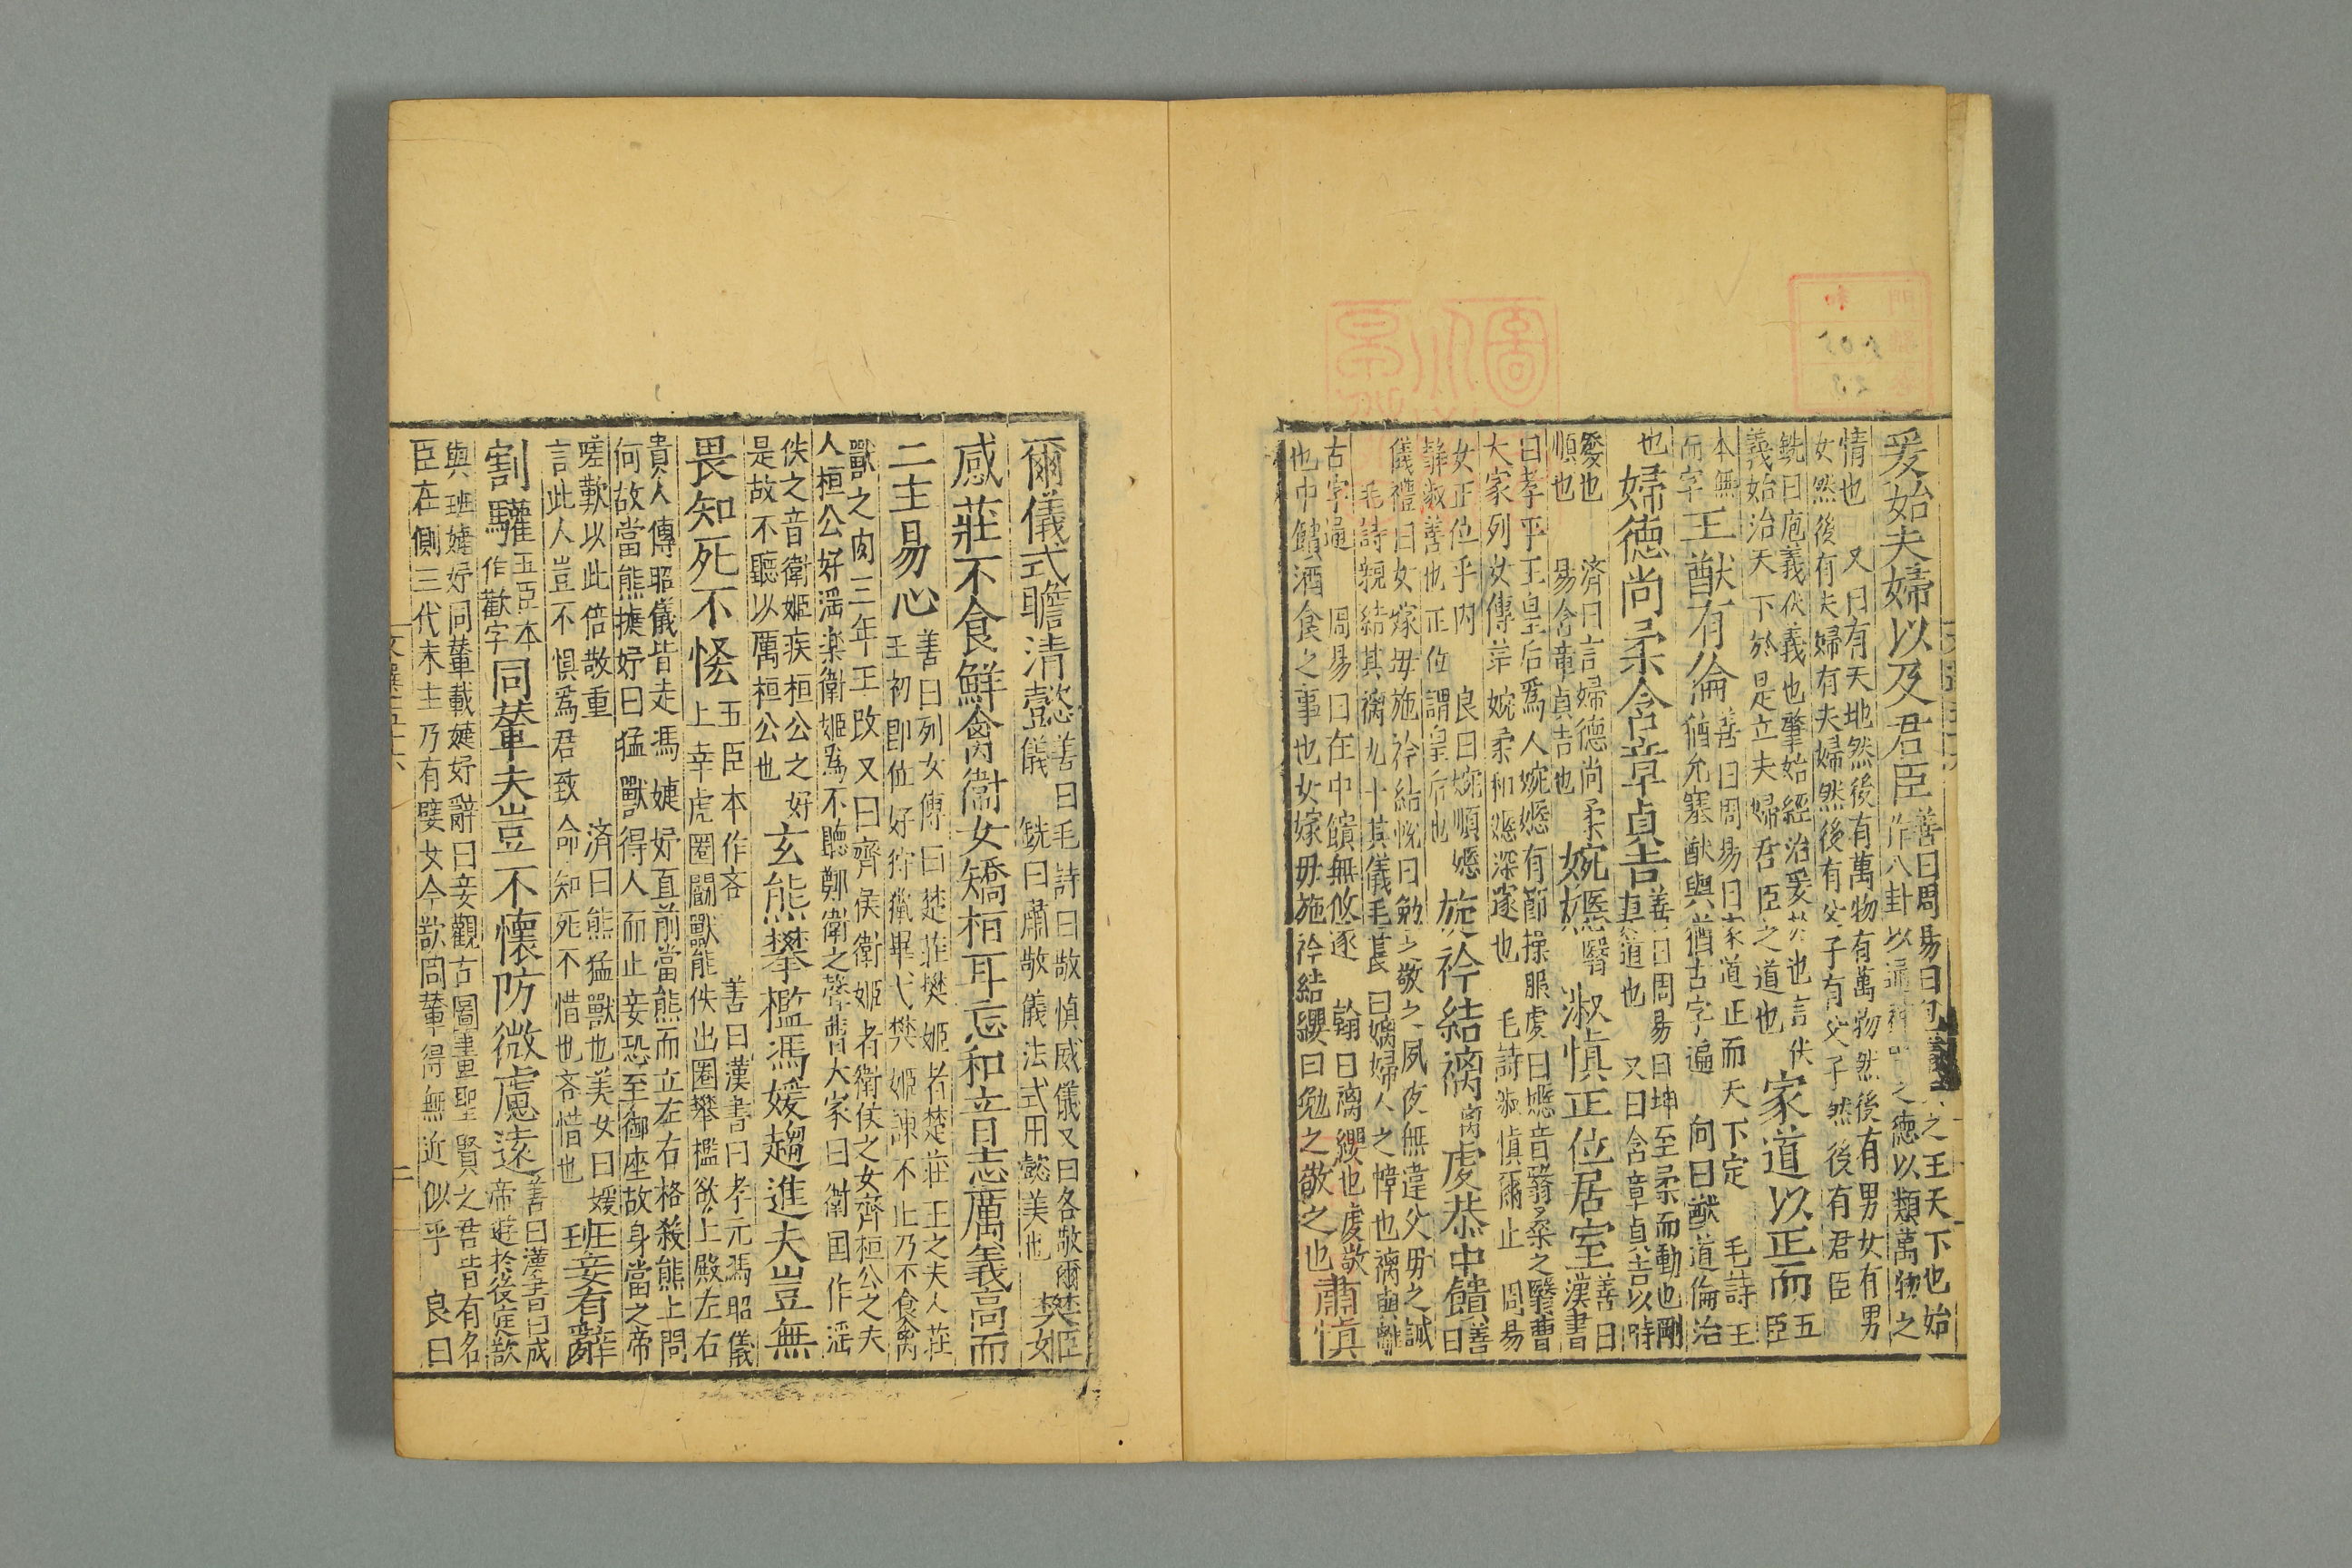 爰始夫婦以及君臣善曰周易曰
之王天下也始
作八卦以通神之德以類萬物之
情也 又曰有天地然後有萬物有萬物然後有男女有男
女然後有夫婦有夫婦然後有父子有父子然後有君臣
銑曰庖義伏義也肇始經治爰於也言伏
義始治天下於是立夫婦君臣之道也
家道以正而五臣
本無
而字
王猷有倫善曰周易曰家道正而天下定 毛詩王
猶允塞猷與猶古字通 向曰猷道倫治
也
婦德尚柔含章貞吉善曰周易曰坤至柔而動也剛
直道也 又曰含章貞吉以時
發也 濟曰言婦德尚柔
順也 易含章貞吉也
婉嫕醫淑慎正位居室善曰漢書
曰孝平王皇后爲人婉嫕有節操服虔曰嫕音翳桑之翳曹
大家列女傳 婉柔和嫕深邃也 毛詩淑慎爾止 周易
女正位乎内 良曰婉順嫕
靜淑善也正位謂皇后也
施衿結褵离虔恭中饋善曰
儀禮曰女嫁毋施衿結帨曰勉之敬之夙夜無違父毋之誡
毛詩親結其褵九十其儀毛萇曰褵婦人之幃也褵與離
古字通 周易曰在中饋無攸遂 翰曰褵纓也虔敬
也中饋酒食之事也女嫁毋施衿結纓曰勉之敬之也
肅慎
爾儀式瞻清懿善曰毛詩曰敬慎威儀又曰各敬爾
儀 銑曰肅敬儀法式用懿美也
樊姬
感莊不食鮮禽衛女矯桓耳忘和音志厲義高而
二主易心善曰列女傳曰楚莊樊姬者楚莊王之夫人莊
王初即位好狩獵畢弋樊姬諫不止乃不食禽
獸之肉三年王改又曰齊侯衛姬者衛侯之女齊桓公之夫
人桓公好淫樂衛姬爲不聽鄭衛之聲曹大家曰衛國作淫
佚之音衛姬疾桓公之好
是故不聽以厲桓公也
玄熊攀檻馮媛趨進夫豈無
畏知死不恡五臣本作吝 善曰漢書曰孝元馮昭儀
上幸虎圈鬭獸能佚出圈攀檻欲上殿左右
貴人傳昭儀皆走馮婕妤直前當熊而立左右格殺熊上問
何故當熊婕妤曰猛獸得人而止妾恐至御座故身當之帝
嗟歎以此倍敬重 濟曰熊猛獸也美女曰媛
言此人豈不惧爲君致命知死不惜也吝惜也
班妾有辭
割驩五臣本
作歡字
同輦夫豈不懷防微慮遠善曰漢書曰成
帝遊於後庭歡
與班婕妤同輦載婕妤辭曰妾觀古圖畫聖賢之君皆有名
臣在側三代末主乃有嬖女今歡同輦得無近似乎 良曰